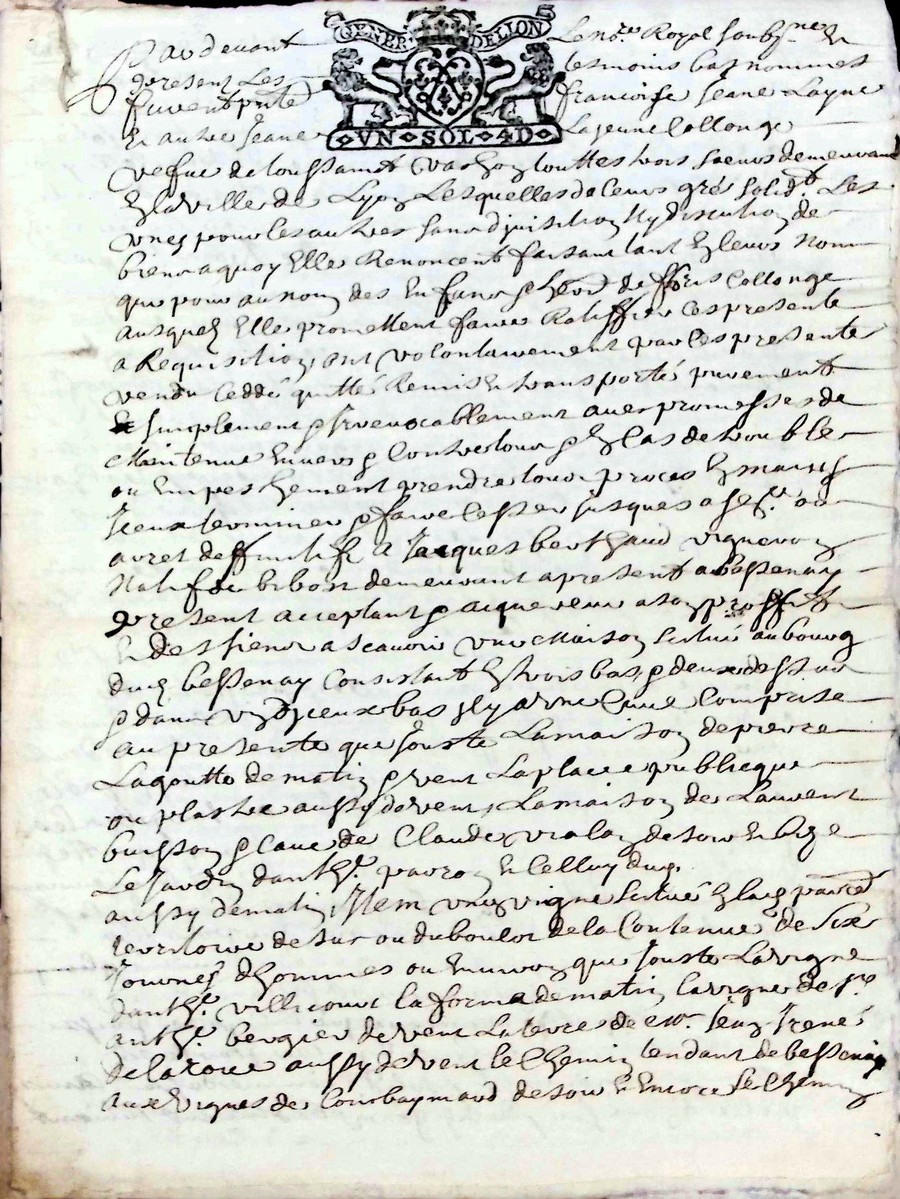 GENER DELLION
VN SOL 4D
Pardevant Le no.re Royal soubs.ne En
present Les tesmoins bas nommes
furent pnte francoise Jeane Layne
Et autre Jeane La jeune Collonge
vefve de toussaint touttes trois soeurs demeurant
En la ville de Lyon Lesquelles de leurs gré solid.t Les
unes pour les autres sans division Ny discution de
biens a quoy Elle Renoncent faisant tant En leurs Nom
que pour au nom des Enfans & de Collonge
ausquels Elle promettent faire Ratiffier ces presente
a Requisition, ont volontairement par ces presente
vendu ceddé quitté Remis Et transporté purement
Et simplement & Irrevocablement avec promesses de
Maintenir Envers & Contre tous & En Cas de trouble
ou Empeschement prendre tous proces En mains
Iceux terminer & faire Cesser jusques a se.ce ou
arret deffinitif A Jacques berthaud vigneron
Natif de bibost demeurant a present a bessenay
present acceptant & acquereur a son proffit
Et des siens a scavoir une Maison scitué au bourg
dud bessenay Consistant En trois bas, & deux dessus
& dans un d'Iceux bas Il y a une Cuve Comprise
au presente que Jouste La maison de pierre
Lagoutte de matin & vent La place publicque
ou plastre aussy de vent, La maison de Laurent
buisson & Cave de Claude vialon de soir Et bize
Le Jardin d'anth.e Et Celluy dud.
aussy de matin, Item une vigne scitué En lad parr.e
territoire de sur ou du boulor de la Contenue de six
Journes d'hommes ou Environ que Jouste La vigne
d'anth.e villecourt la forma de matin la vigne de s.r
anth.e bergier de vent La terre de m.r Jean Irené
de la roue aussy de vent le Chemin tendant de bessenay
aux vignes de Combaymard de soir Et Encore le Chemin